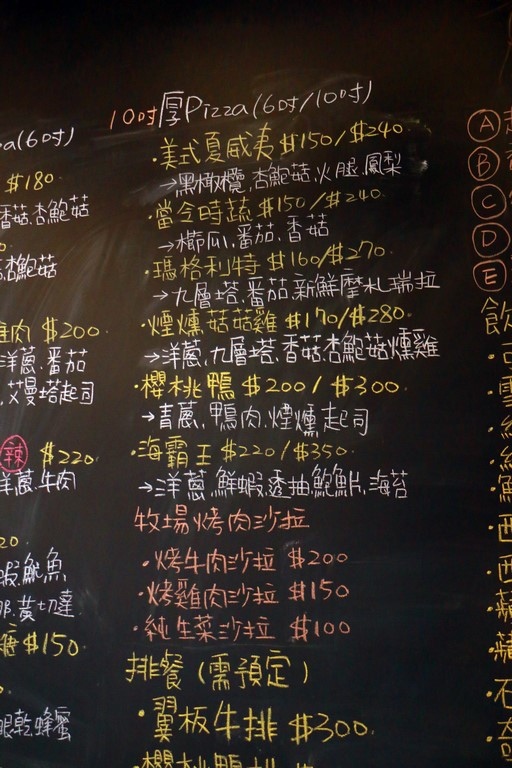 10吋厚Pizza(6吋/10吋)
·美式夏威夷 $150/$240
→黑橄欖,杏鮑菇,火腿,鳳梨
·當令時蔬 $150/$240
→櫛瓜,番茄,香菇
·瑪格利特 $160/$270
→九層塔,番茄,新鮮摩札瑞拉
·煙燻菇菇雞 $170/$280
→洋蔥,九層塔,香菇,杏鮑菇,燻雞
·櫻桃鴨 $200/$300
→青蔥,鴨肉,煙燻起司
·海霸王 $220/$350
→洋蔥,鮮蝦,透抽,鮑魚片,海苔
牧場烤肉沙拉
·烤牛肉沙拉 $200
·烤雞肉沙拉 $150
·純生菜沙拉 $100
排餐(需預定)
·翼板牛排 $300
·櫻桃鴨排
a(6吋)
$180
香菇,杏鮑菇
杏鮑菇
肉 $200
洋蔥,番茄
艾曼塔起司
辣 $220
洋蔥,牛肉
20
蝦,魷魚
黃切達
糖 $150
眼乾,蜂蜜
A
B
C
D
E
飲